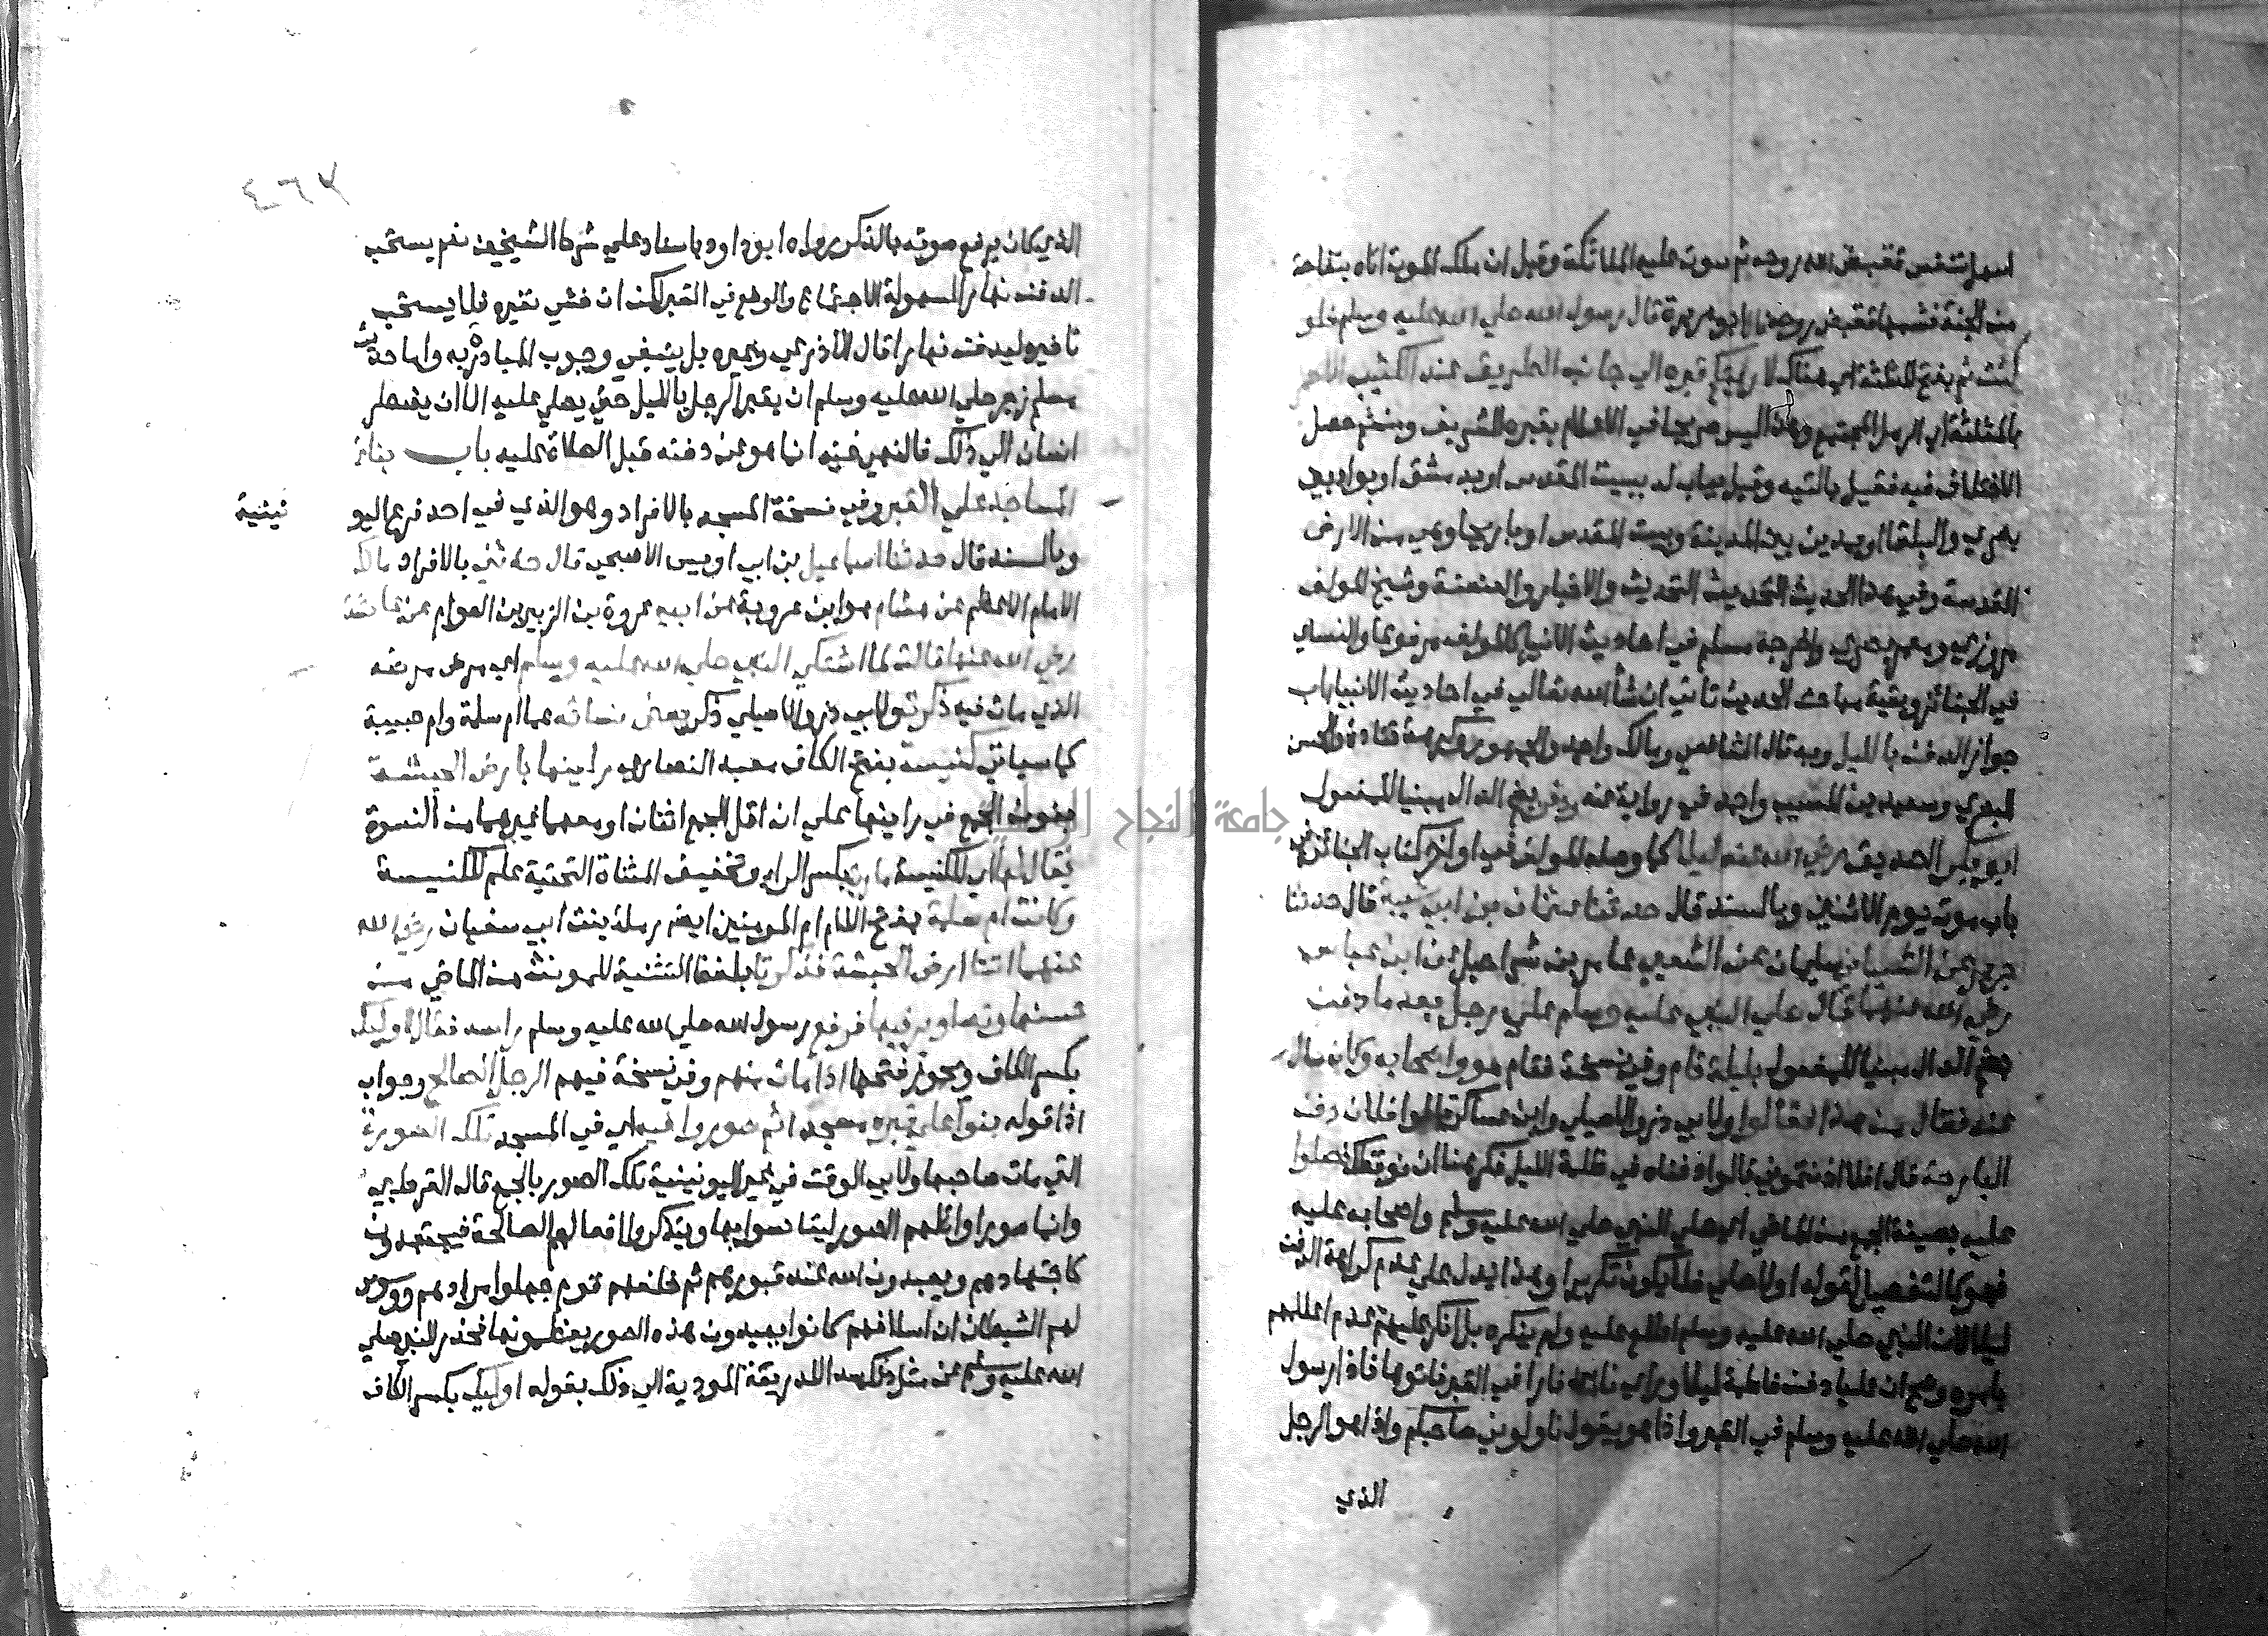 اسهل تنفس فقبض الله روحه ثم سوت عليه الملائكة وقيل ان ملك الموت اتاه بتفاحة
من الجنة فشمها فقبض روحه قال ابو هريرة قال رسول الله صلي الله عليه وسلم فلو
كنت ثم بفتح المثلثة اي هناك لاريتكم قبره الي جانب الطريق عند الكثيب الاحمر
بالمثلثة اي الرمل المجتمع وهذا ليس صريحا في الاعلام بقبره الشريف ومن ثم حصل
الاختلاف فيه فقيل بالتيه وقيل بباب لد ببيت المقدس او بدمشق او بواد بين
بصري والبلقا او بمدين بين المدينة وبيت المقدس او باريحا وهي من الارض
المقدسة وفي هذا الحديث التحديث والاخبار والعنعنة وشيخ المولف
مروزي ومعمر بصري واخرجه مسلم في احاديث الانبيا كالمولف مرفوعا والنساي
في الجنائز وبقية مباحث الحديث تاتي ان شا الله تعالي في احاديث الانبيا باب
جواز الدفن بالليل وبه قال الشافعي ومالك واحمد والجمهور وكرهه قتادة والحسن
البصري وسعيد بن المسيب واحمد في رواية عنه ودفن بضم الدال مبنيا للمفعول
ابو بكر الصديق رضي الله عنه ليلا كما وصله المولف في اواخر كتاب الجنائز في
باب موت يوم الاثنين وبالسند قال حدثنا عثمان بن ابي شيبة قال حدثنا
جرير عن الشيباني سليمان عن الشعبي عامر بن شراحيل عن ابن عباس
رضي الله عنهما قال صلي النبي عليه وسلم علي رجل بعد ما دفن
بضم الدال مبنيا للمفعول بليلة قام وفي نسخة فقام هو واصحابه وكان سال
عنه فقال من هذا فقالوا ولابي ذر والاصيلي وابن عساكر قالوا فلان دفن
البارحة قال افلا اذنتموني قالوا دفناه في ظلمة الليل فكرهنا ان نوقظك فصلوا
عليه بصيغة الجمع من الماضي اي صلي النبي صلي الله عليه وسلم واصحابه عليه
فهو كالتفصيل لقوله اولا صلي فلا يكون تكريرا وهذا يدل علي عدم كراهة الدفن
ليلا لان النبي صلي الله عليه وسلم اطلع عليه ولم ينكره بل انكر عليهم عدم اعلامهم
بامره وصح ان عليا دفن فاطمة ليلا وراي ناس نارا في القبر فاتوها فاذا رسول
الله صلي الله عليه وسلم في القبر واذا هو يقول ناولوني صاحبكم واذا هو الرجل
الذي
٤٦٧
الذي كان يرفع صوته بالذكر رواه ابو داود باسناد علي شرط الشيخين نعم يستحب
الدفن نهارا لسهولة الاجتماع والوضع في القبر لكن ان خشي تغيره فلا يستحب
تاخيره ليدفن نهارا قال الاذرعي وغيره بل ينبغي وجوب المبادرة به واما حديث
مسلم زجر صلي الله عليه وسلم ان يقبر الرجل بالليل حتي يصلي عليه الا ان يضطر
انسان الي ذلك فالنهي فيه انما هو عن دفنه قبل الصلاة عليه باب بنا
المساجد علي القبر وفي نسخة المسجد بالافراد وهو الذي في احد فرعي اليو
نينية
وبالسند قال حدثنا اسماعيل بن ابي اويس الاصبحي قال حدثني بالافراد مالك
الامام الاعظم عن هشام هو ابن عروة عن ابيه عروة بن الزبير بن العوام عن عائشة
رضي الله عنها قالت لما اشتكي النبي صلي الله عليه وسلم اي مرض مرضه
الذي مات فيه ذكرت ولابي ذر والاصيلي ذكر بعض نسائه هما ام سلمة وام حبيبة
كما سياتي كنيسة بفتح الكاف معبد النصاري راينها بارض الحبشة
بنون الجمع في راينها علي ان اقل الجمع اثنان او معهما غيرهما من النسوة
يقال لها اي للكنيسة مارية بكسر الراء وتخفيف المثناة التحتية علم للكنيسة
وكانت ام سلمة بفتح اللام ام المومنين ايضا رملة بنت ابي سفيان رضي الله
عنهما اتتا ارض الحبشة فذكرتا بلفظ التثنية للمونث من الماضي من
حسنها وتصاوير فيها فرفع رسول الله صلي الله عليه وسلم راسه فقال اوليك
بكسر الكاف ويجوز فتحها اذا مات منهم وفي نسخة فيهم الرجل الصالح وجواب
اذا قوله بنوا علي قبره مسجدا ثم صوروا فيه اي في المسجد تلك الصورة
التي مات صاحبها ولابي الوقت في غير اليونينية تلك الصور بالجمع قال القرطبي
وانما صور اوائلهم الصور ليتانسوا بها ويتذكروا افعالهم الصالحة فيجتهدون
كاجتهادهم ويعبدون الله عند قبورهم ثم خلفهم قوم جهلوا مرادهم ووسوس
لهم الشيطان ان اسلافهم كانوا يعبدون هذه الصور يعظمونها فحذر النبي صلي
الله عليه وسلم عن مثل ذلك سد اللذريعة المودية الي ذلك بقوله اوليك بكسر الكاف
جامعة النجاح الوطنية